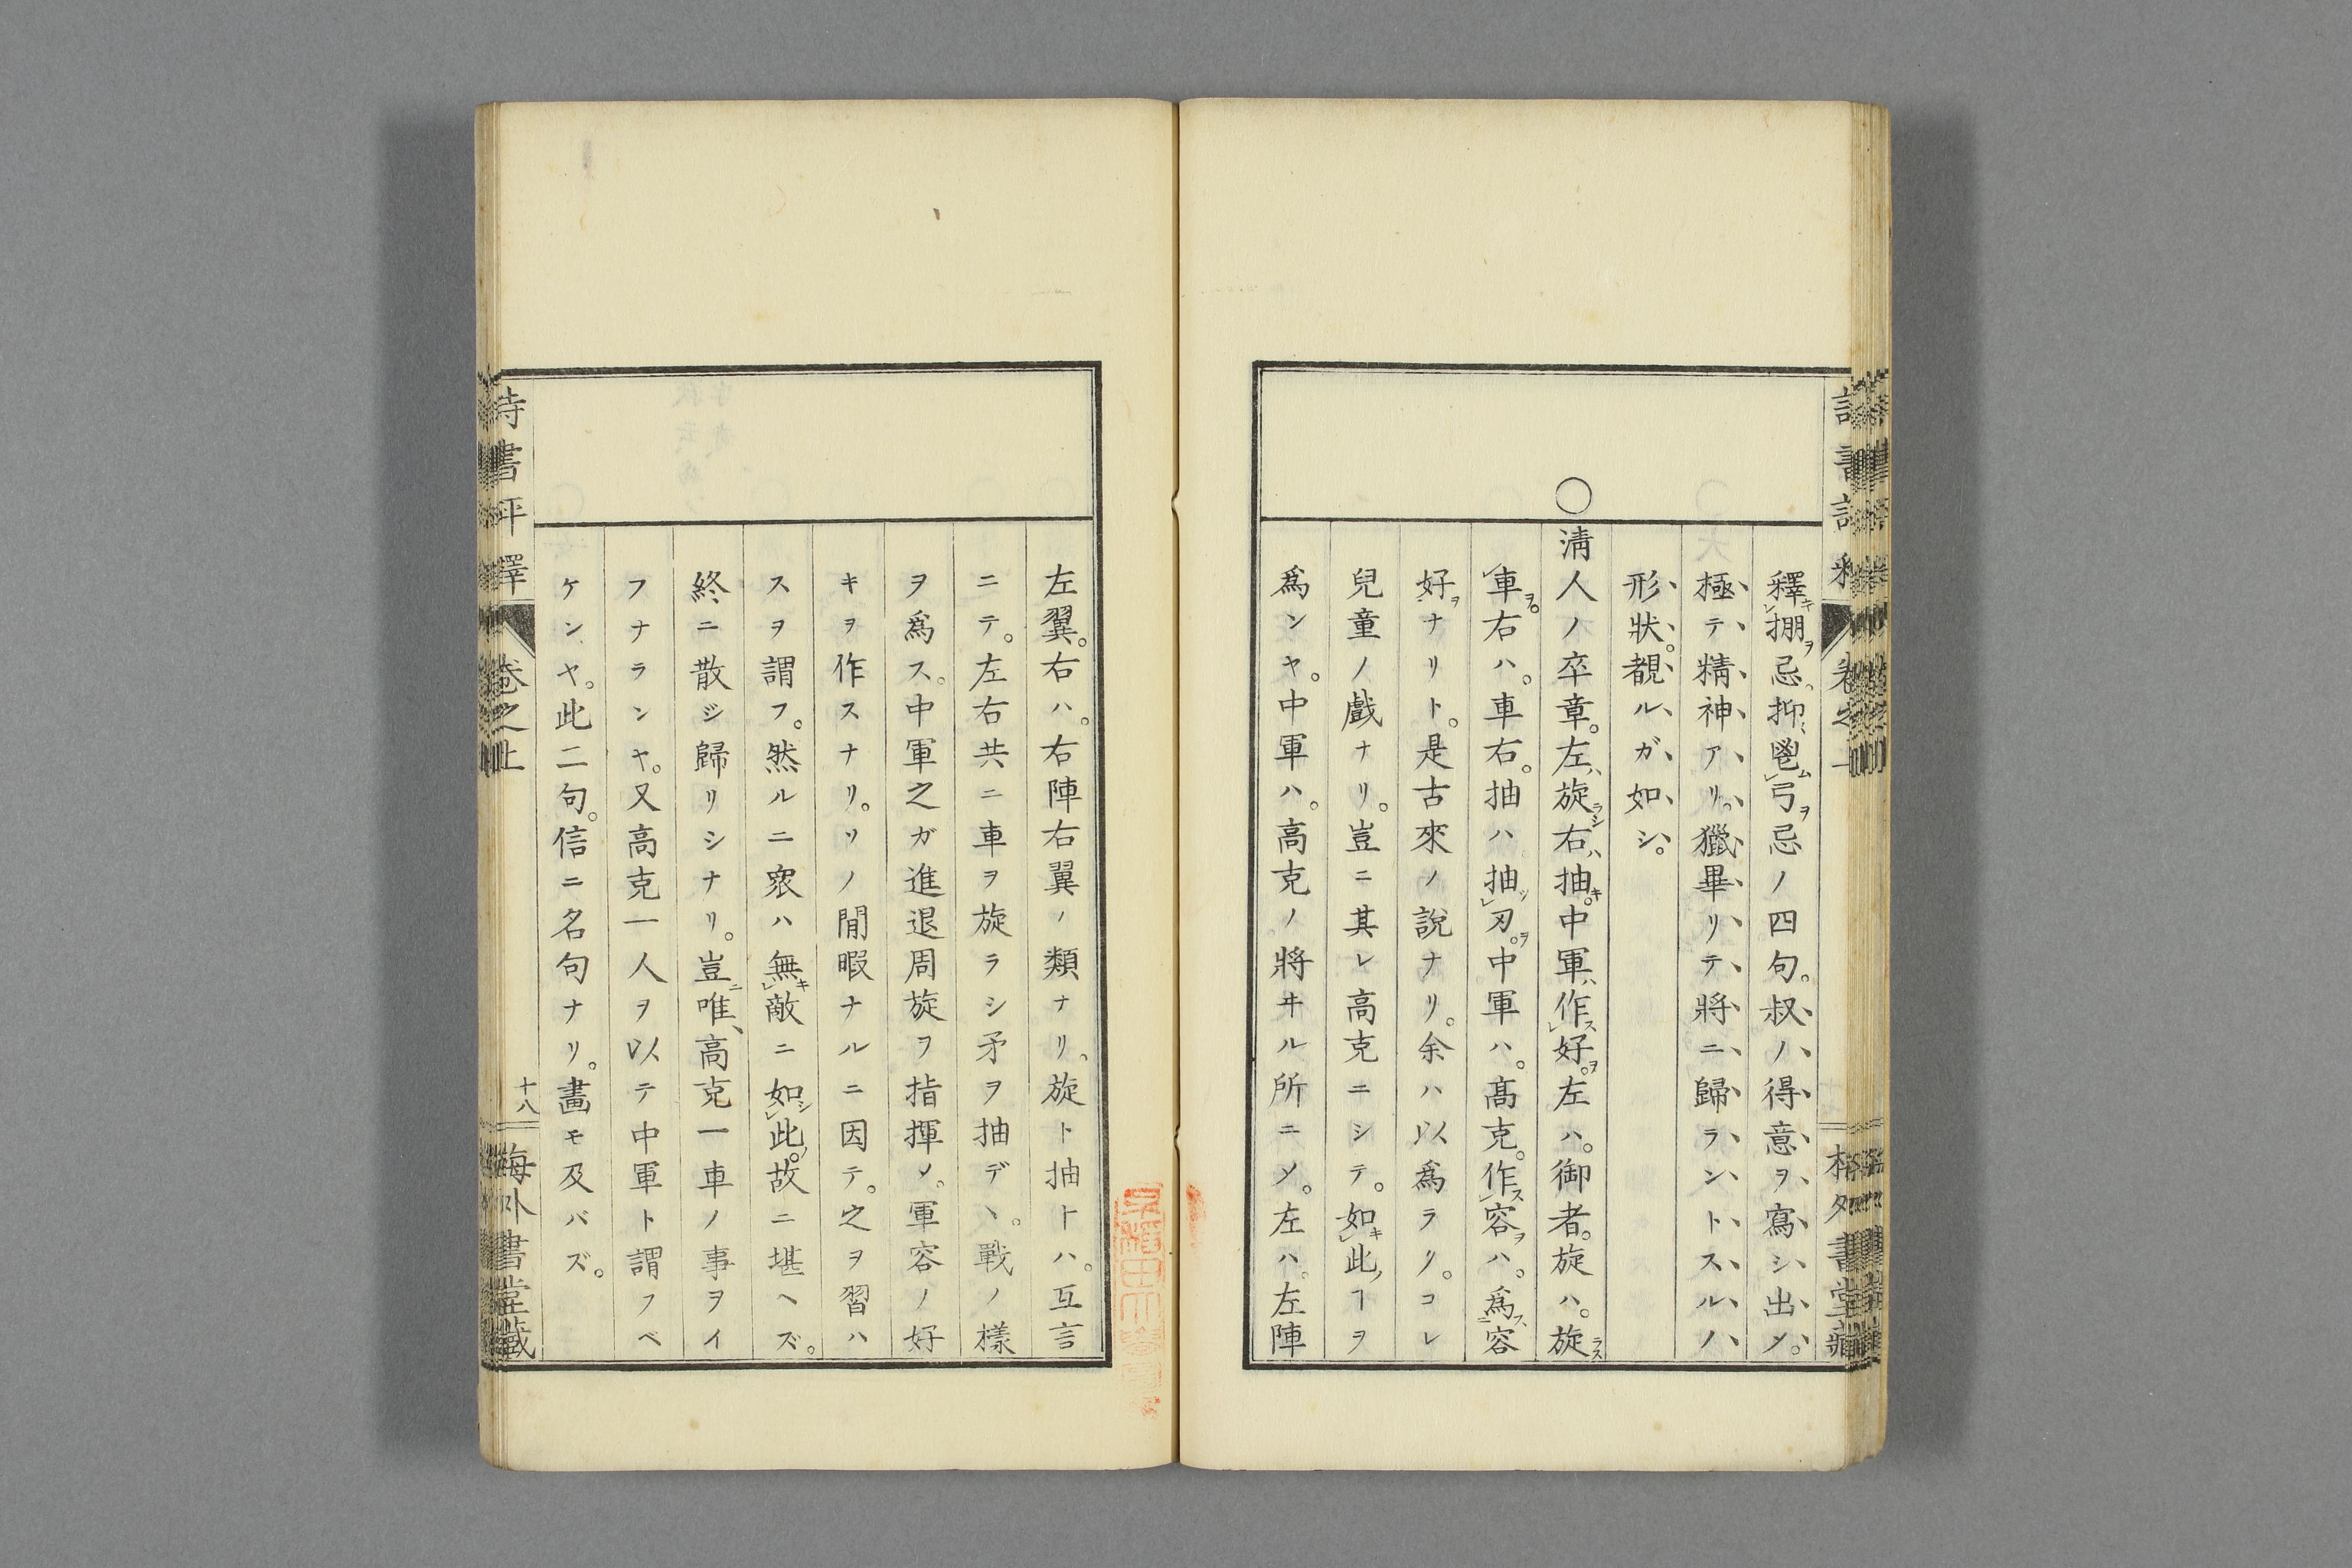 釋掤忌。抑鬯弓忌ノ四句。叔ノ得意ヲ寫シ出ソ。
極テ精神アリ。獵畢リテ將ニ歸ラントスルノ
形狀。覩ルガ如シ。
○淸人ノ卒章。左旋右抽。中軍作好。左ハ。御者。旋ハ。旋
車。右ハ。車右。抽ハ抽刃。中軍ハ。高克。作容ハ。爲容
好ナリト。是古來ノ說ナリ。余ハ以爲ラク。コレ
兒童ノ戲ナリ。豈ニ其レ高克ニシテ。如此ヿヲ
爲ンヤ。中軍ハ。高克ノ將ヰル所ニソ。左ハ。左陣
左翼。右ハ。右陣右翼ノ類ナリ。旋ト抽トハ。互言
ニテ。左右共ニ車ヲ旋ラシ矛ヲ抽デヽ。戰ノ樣
ヲ爲ス。中軍之ガ進退周旋ヲ指揮ソ。軍容ノ好
キヲ作スナリ。ソノ閒暇ナルニ因テ。之ヲ習ハ
スヲ謂フ。然ルニ衆ハ無敵ニ如此。故ニ堪ヘズ。
終ニ散ジ歸リシナリ。豈唯高克一車ノ事ヲイ
フナランヤ。又高克一人ヲ以テ中軍ト謂フベ
ケンヤ。此二句。信ニ名句ナリ。畫モ及バズ。
詩書評釋
卷之上
十八
梅外書堂藏